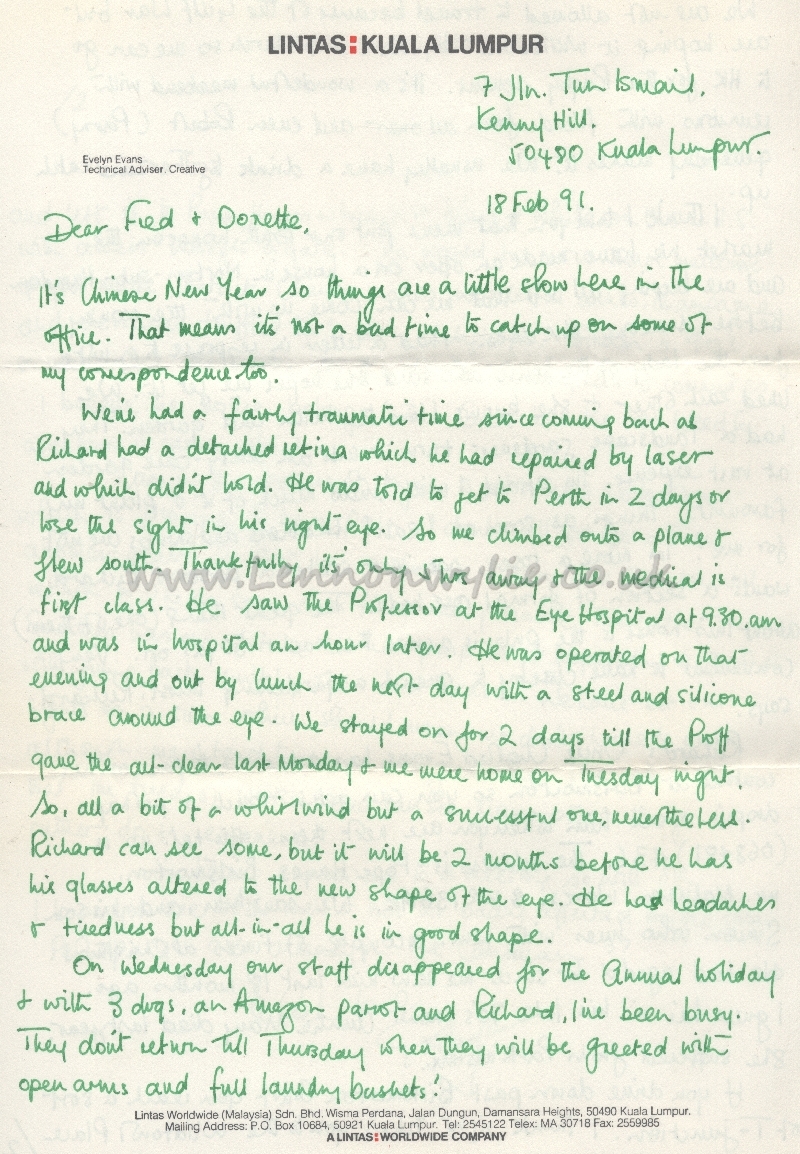 LINTAS:KUALA LUMPUR
7 Jln. Tun Ismail,
Kenny Hill.
50480 Kuala Lumpur.
Evelyn Evans
Technical Adviser. Creative
18 Feb 91.
Dear Fred + Dorette,
It's Chinese New Year, so things are a little slow here in the
office. That means it's not a bad time to catch up on some of
my correspondence too.
We've had a fairly traumatic time since coming back as
Richard had a detached retina which he had repaired by laser
and which didn't hold. He was told to get to Perth in 2 days or
lose the sight in his right eye. So we climbed onto a plane &
flew south. Thankfully it's only hrs away & the medical is
www.Lennonwylie.co.uk
first class. He saw the Professor at the Eye Hospital at 9.30.am
and was in hospital an hour later. He was operated on that
evening and out by lunch the next day with a steel and silicone
brace around the eye. We stayed on for 2 days till the Proff
gave the all-clear last Monday & we were home on Tuesday night.
So, all a bit of a whirlwind but a successful one, nevertheless.
Richard can see some, but it will be 2 months before he has
his glasses altered to the new shape of the eye. He has headaches
& tiredness but all-in-all he is in good shape.
On Wednesday our staff disappeared for the Annual holiday
& with 3 dogs, an Amazon parrot and Richard, I've been busy.
They don't return till Thursday when they will be greeted with
open arms and full laundry baskets.
Lintas Worldwide (Malaysia) Sdn. Bhd. Wisma Perdana, Jalan Dungun, Damansara Heights, 50490 Kuala Lumpur.
Mailing Address: P.O. Box 10684, 50921 Kuala Lumpur. Tel: 2545122 Telex: MA 30718 Fax: 2559985
A LINTAS:WORLDWIDE COMPANY